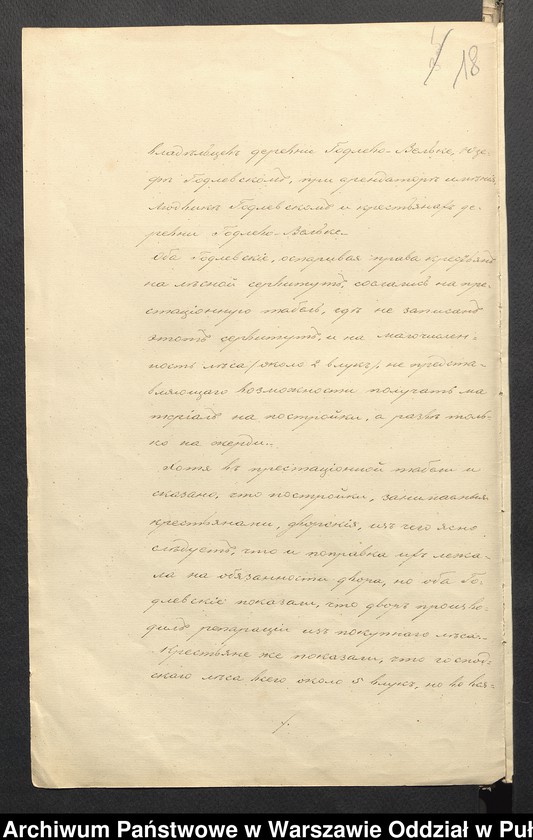 18
владѣльцевъ деревни Годлево-Вельке, Юзе-
фѣ Годлевскомъ, при арендаторѣ имѣнія
Людвикѣ Годлевскомъ и крестьянахъ де-
ревни Годлево-Вельке.
Оба Годлевскіе, оспаривая права крестьянъ
на лѣсной сервитутъ, сослались на пре-
стаціонную табель, гдѣ не записанъ
этотъ сервитутъ, и на малочислен-
ность лѣса (около 2 влукъ), не предста-
вляющаго возможности получать ма
теріалъ на постройки, а развѣ толь-
ко на жерди.
Хотя въ престаціонной табели и
сказано, что постройки, занимаемыя
крестьянами, дворскія, изъ чего ясно
слѣдуетъ, что и поправка ихъ лежа-
ла на обязанности двора, но оба Го-
длевскіе показали, что дворъ произво-
дилъ репараціи изъ покупнаго лѣса.
Крестьяне же показали, что господ-
скаго лѣса всего около 5 влукъ, но
Archiwum Państwowe w Warszawie Oddział w Puł